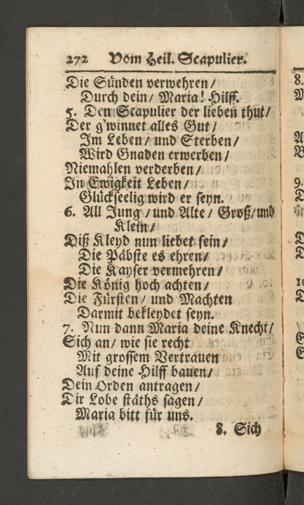 272 Vom Heil. Scapulier.
Die Sünden verwehren/
Durch dein/ Maria! Hilff.
5. Den Scapulier der lieben thut/
Der g'winnet alles Gut/
Im Leben/ und Sterben/
Wird Gnaden erwerben/
Niemahlen verderben/
In Ewigkeit Leben/
Glückseelig wird er seyn.
6. All Jung/ und Alte/ Groß/ und
Klein/
Diß Kleyd nun liebet fein/
Die Päbste es ehren/
Die Kayser vermehren/
Die König hoch achten/
Die Fürsten/ und Machten
Darmit bekleydet seyn.
7. Nun dann Maria deine Knecht/
Sich an/ wie sie recht
Mit grossem Vertrauen
Auf deine Hilff bauen/
Dein Orden antragen/
Dir Lobe stäths sagen/
Maria bitt für uns.
8. Sich